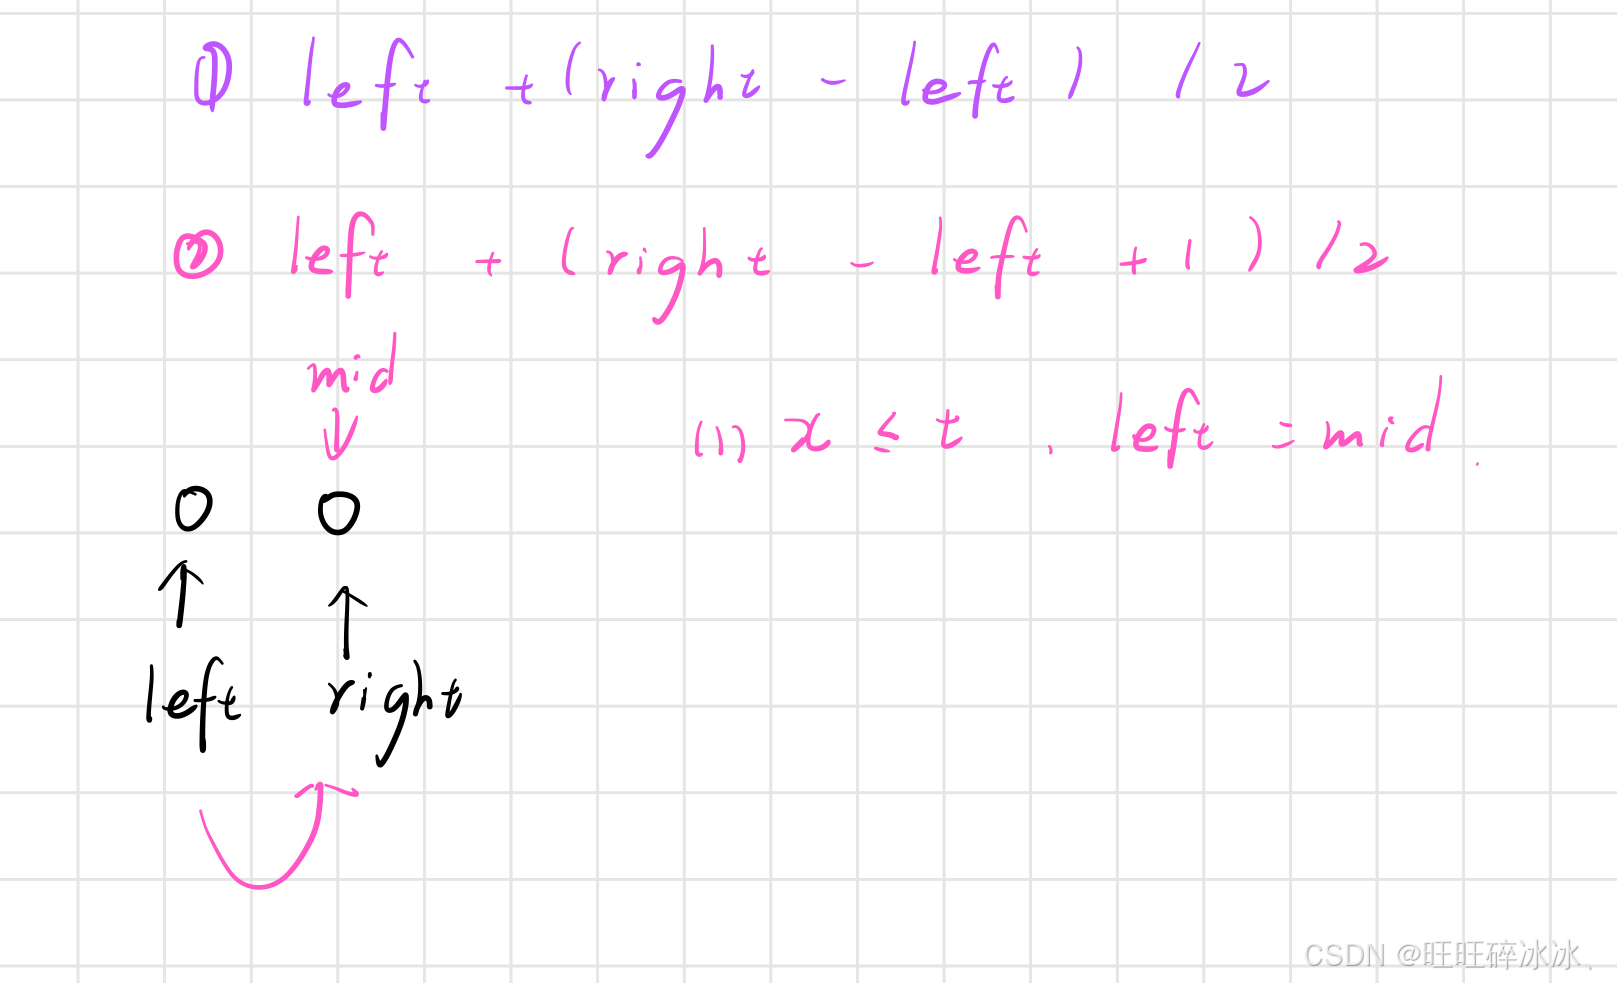 ① left + (right - left) / 2
② left + (right - left + 1) / 2
mid
(1) x ≤ t . left = mid.
left right
CSDN @旺旺碎冰冰、